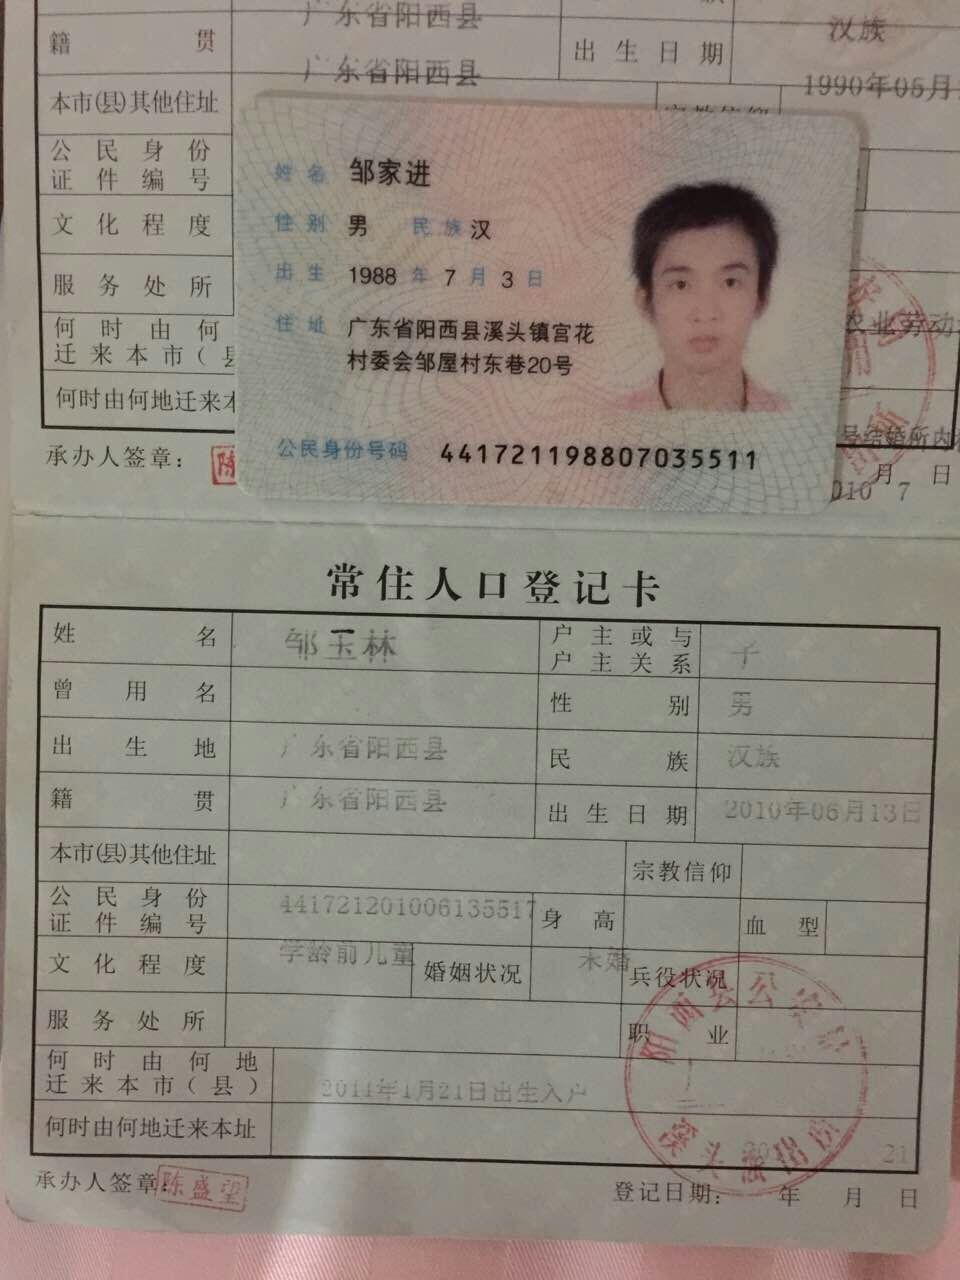 广东省阳西县
汉族
籍贯
广东省阳西县
出生日期
1990年05月
本市(县)其他住址
公民身份
证件编号
文化程度
服务处所
何时由何
迁来本市(县
何时由何地迁来本
承办人签章:
陈
姓名 邹家进
性别 男 民族 汉
出生 1988 年 7 月 3 日
住址 广东省阳西县溪头镇宫花
村委会邹屋村东巷20号
公民身份号码 441721198807035511
农业劳动
号结婚所内
010 7 月 日
常住人口登记卡
姓名 邹玉林 户主或与
户主关系 子
曾用名 性别 男
出生地 广东省阳西县 民族 汉族
籍贯 广东省阳西县 出生日期 2010年06月13日
本市(县)其他住址 宗教信仰
公民身份
证件编号 441721201006135517 身高 血型
文化程度 学龄前儿童 婚姻状况 未婚 兵役状况
服务处所 职业
何时由何地
迁来本市(县) 2011年1月21日出生入户
何时由何地迁来本址
阳西县公安局
21
承办人签章: 陈盛望 登记日期: 年 月 日